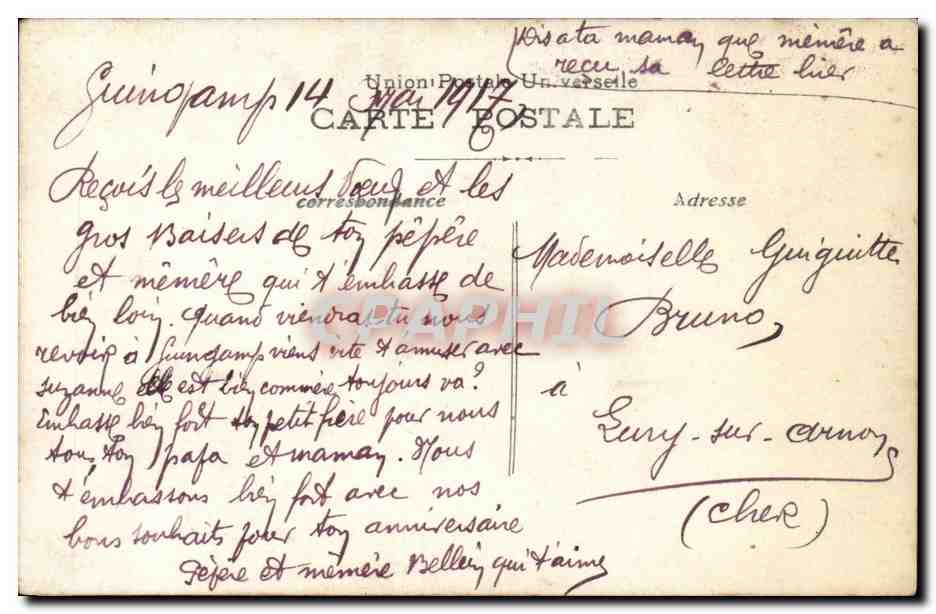 Dis a ta maman que mémère a
reçu sa lettre hier
Union Postale Universelle
Guingamp 14 Mai 1917
CARTE POSTALE
Reçois les meilleurs vœux et les
correspondance
gros Baisers de ton pépère
et mémère qui t'embasse de
bien loin. Quand viendras-tu nous
revoir à Guingamp viens vite t'amuser avec
Suzanne elle est bien commère toujours va?
Embasse bien fort ton petit frère pour nous
tous, ton papa et maman. Nous
t'embassons bien fort avec nos
bons souhaits pour ton anniversaire
Pépère et mémère Bellein qui t'aime
Adresse
Mademoiselle Guiguitte
Bruno
à
Lury-sur-Arnon
(Cher)
CPAPHIL